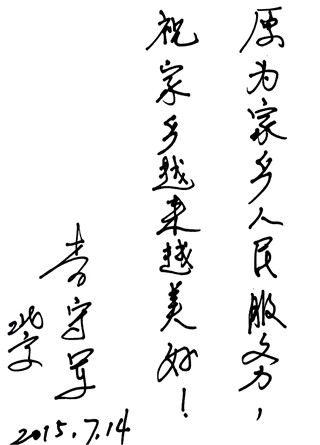 愿为家乡人民服务，
祝家乡越来越美好！
李守军
北京
2015.7.14